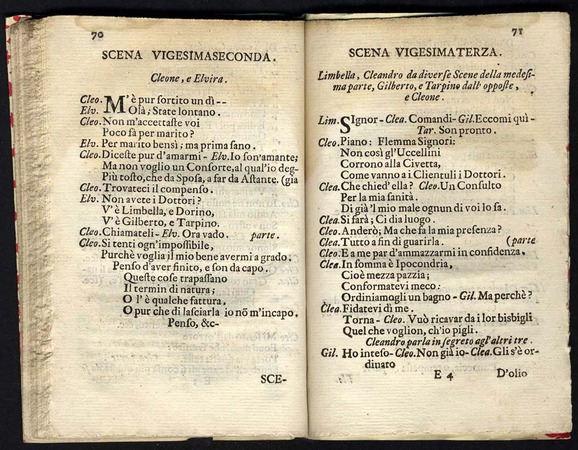 70
SCENA VIGESIMASECONDA.
Cleone, e Elvira.
Cleo. M'è pur sortito un dì--
Elv. Olà; State lontano.
Cleo. Non m'accettaste voi
Poco fà per marito?
Elv. Per marito bensì; ma prima sano.
Cleo. Diceste pur d'amarmi- Elv. Io son'amante;
Ma non voglio un Consorte, al qual'io deg-
Più tosto, che da Sposa, a far da Astante. (gia
Cleo. Trovateci il compenso.
Elv. Non avete i Dottori?
V'è Limbella, e Dorino,
V'è Gilberto, e Tarpino.
Cleo. Chiamateli- Elv. Ora vado. parte.
Cleo. Si tenti ogn'impossibile,
Purchè voglia il mio bene avermi a grado.
Penso d'aver finito, e son da capo.
Queste cose trapassano
Il termin di natura;
O l'è qualche fattura,
O pur che di lasciarla io nõ m'incapo.
Penso, &c-
SCE-
71
SCENA VIGESIMATERZA.
Limbella, Cleandro da diverse Scene della medesi-
ma parte, Gilberto, e Tarpino dall'opposte,
e Cleone.
Lim. SIgnor- Clea. Comandi- Gil. Eccomi quì-
Tar. Son pronto.
Cleo. Piano: Flemma Signori:
Non così gl'Uccellini
Corrono alla Civetta,
Come vanno a i Clientuli i Dottori.
Clea. Che chied'ella? Cleo. Un Consulto
Per la mia sanità.
Di già'l mio male ognun di voi lo sa.
Clea. Si farà; Ci dia luogo.
Cleo. Anderò; Ma che fa la mia presenza?
Clea. Tutto a fin di guarirla. (parte
Cleo. E a me par d'ammazzarmi in confidenza.
Clea. In somma è Ipocondria,
Cioè mezza pazzia;
Conformatevi meco:
Ordiniamogli un bagno- Gil. Ma perchè?
Clea. Fidatevi di me.
Torna- Cleo. Vuò ricavar da i lor bisbigli
Quel che voglion, ch'io pigli.
Cleandro parla in segreto agl'altri tre.
Gil. Ho inteso- Cleo. Non già io- Clea. Gli s'è or-
dinato
E 4
D'olio